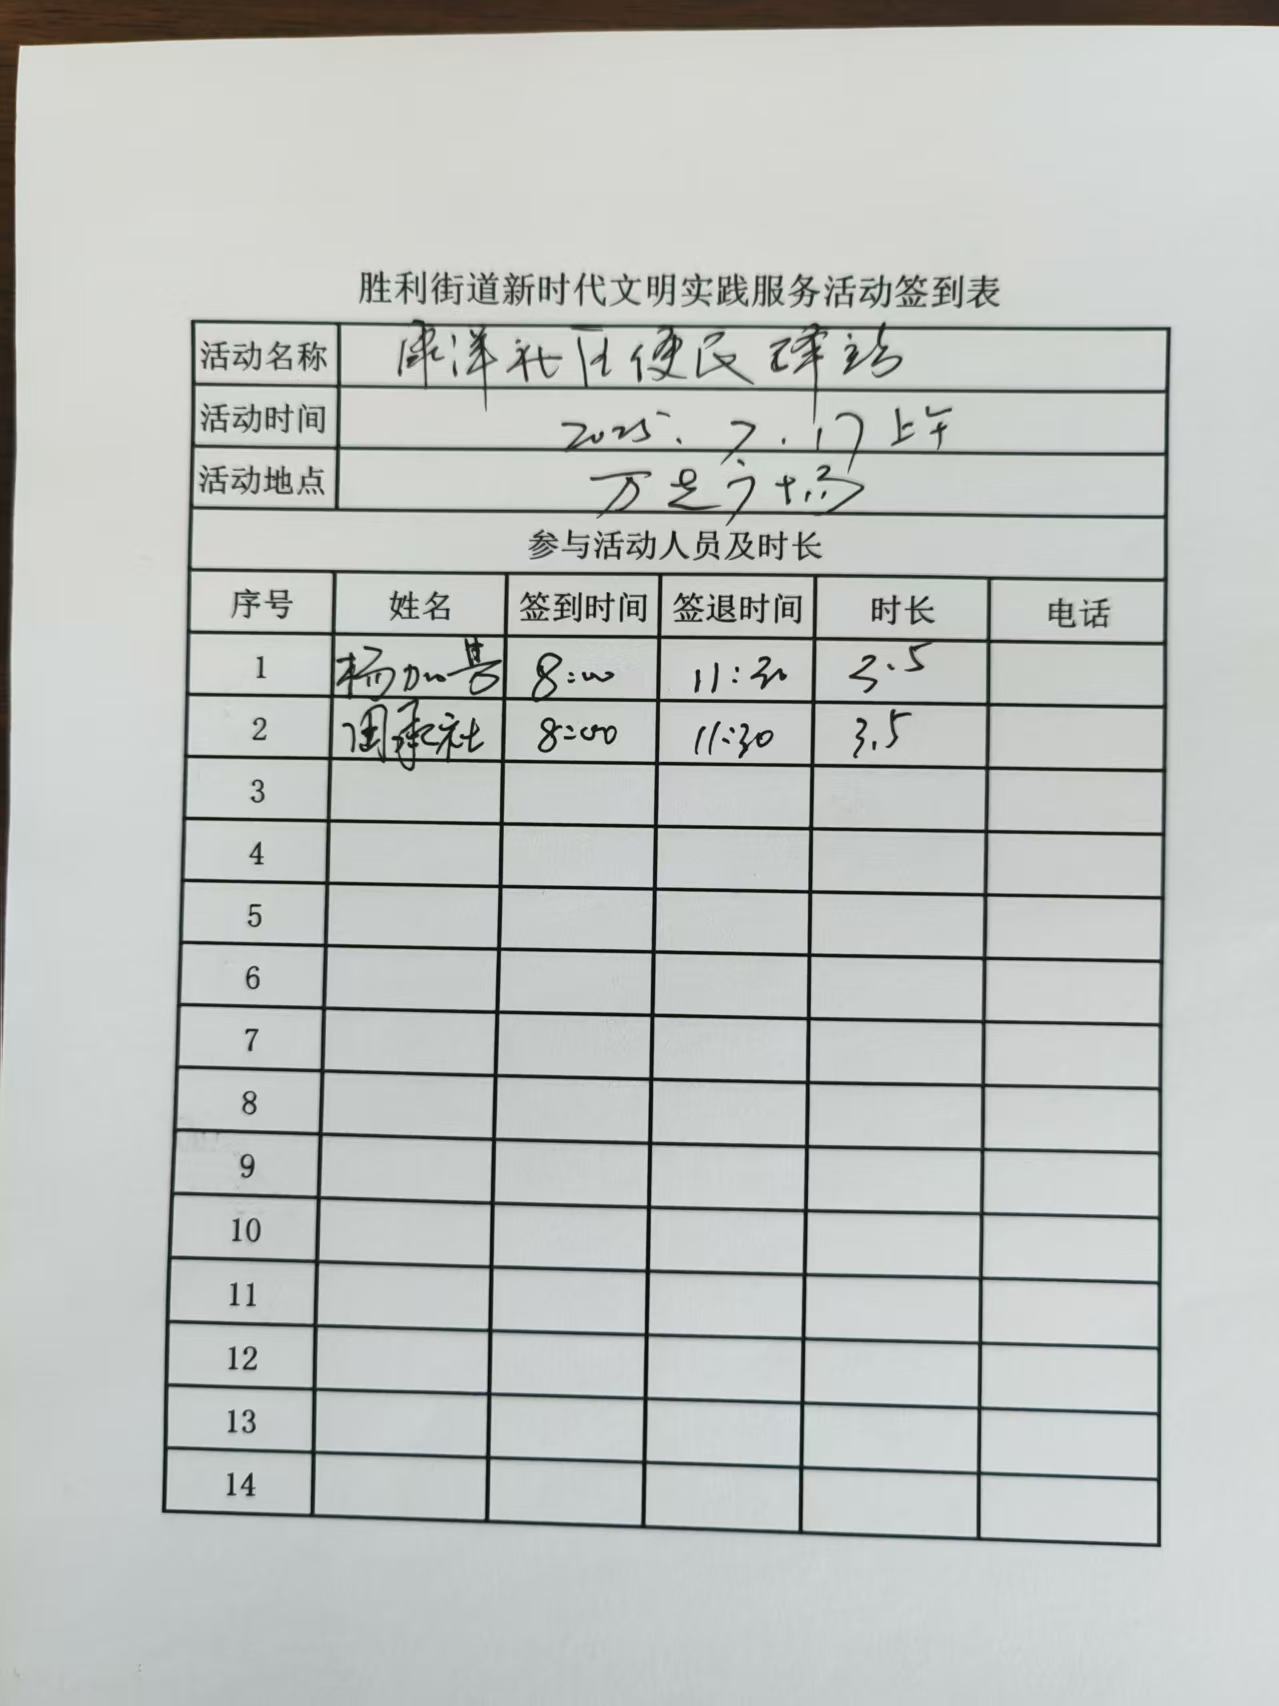 胜利街道新时代文明实践服务活动签到表
活动名称 康洋社区便民驿站
活动时间 2025.7.17 上午
活动地点 万达广场
参与活动人员及时长
序号 姓名 签到时间 签退时间 时长 电话
1 杨加 8:00 11:30 3.5
2 周承社 8:00 11:30 3.5
3
4
5
6
7
8
9
10
11
12
13
14